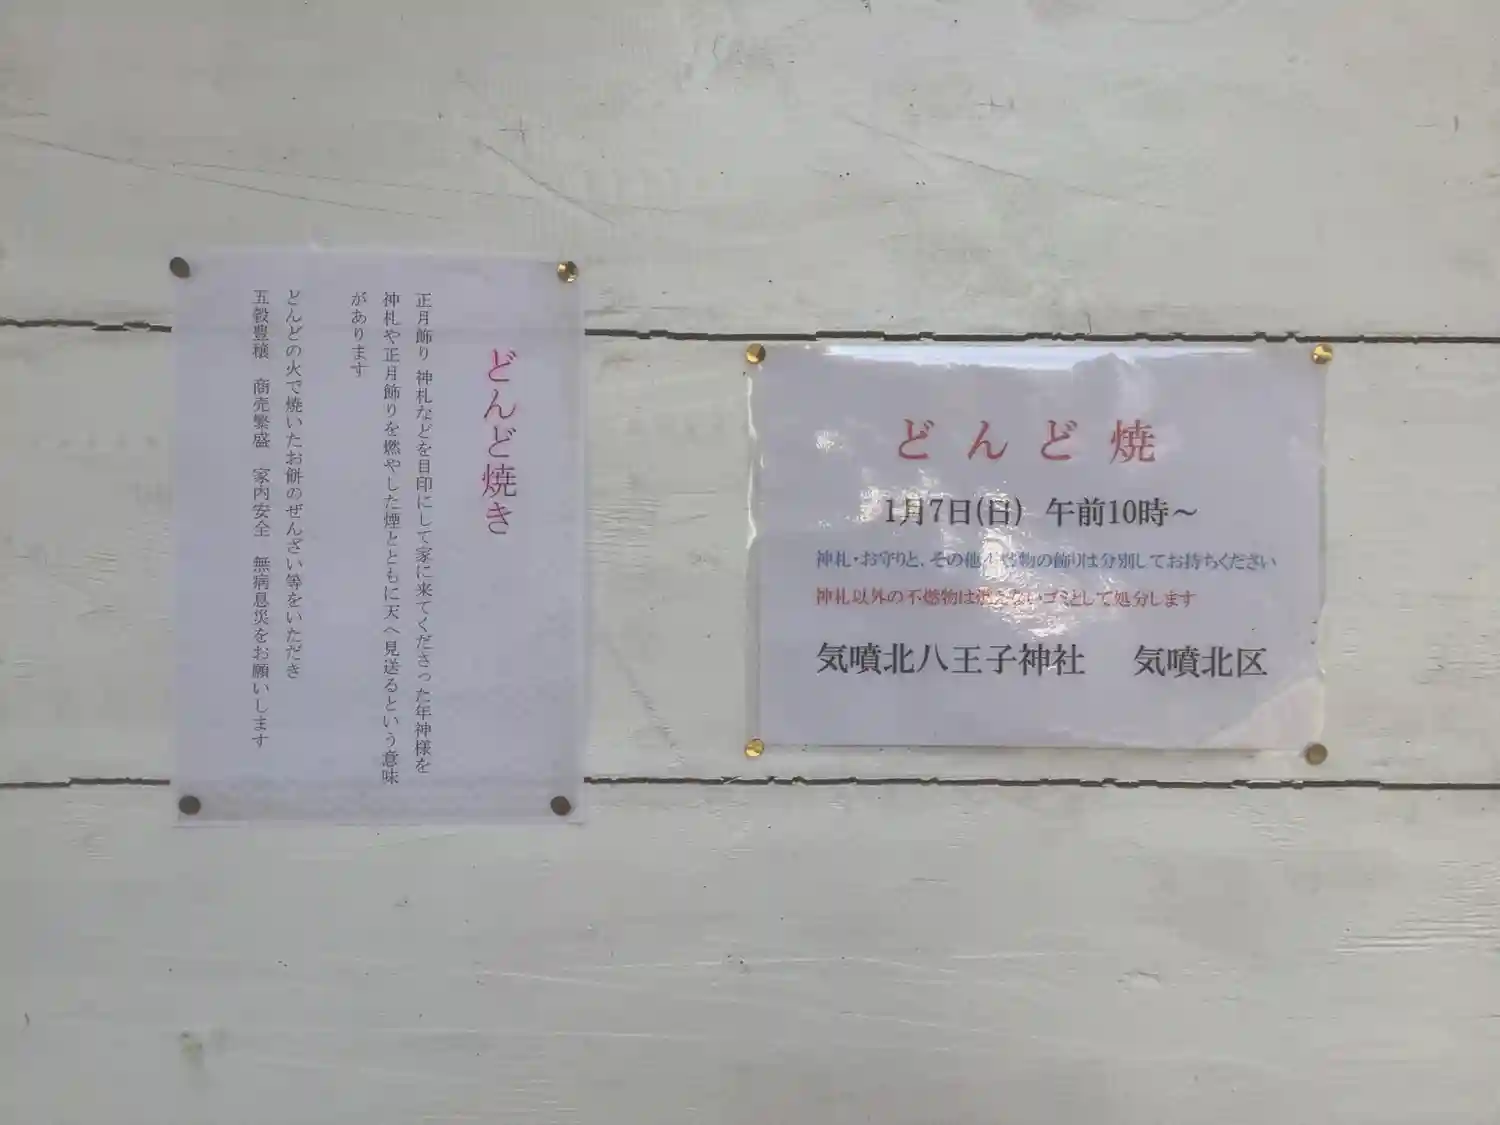 どんど焼き
正月飾り 神札などを目印にして家に来てくださった年神様を
神札や正月飾りを燃やした煙とともに天へ見送るという意味
があります
どんどの火で焼いたお餅のぜんざい等をいただき
五穀豊穣 商売繁盛 家内安全 無病息災をお願いします
どんど焼
1月7日(日) 午前10時～
神札・お守りと、その他 物の飾りは分別してお持ちください
神札以外の不燃物は燃えないゴミとして処分します
気噴北八王子神社 気噴北区